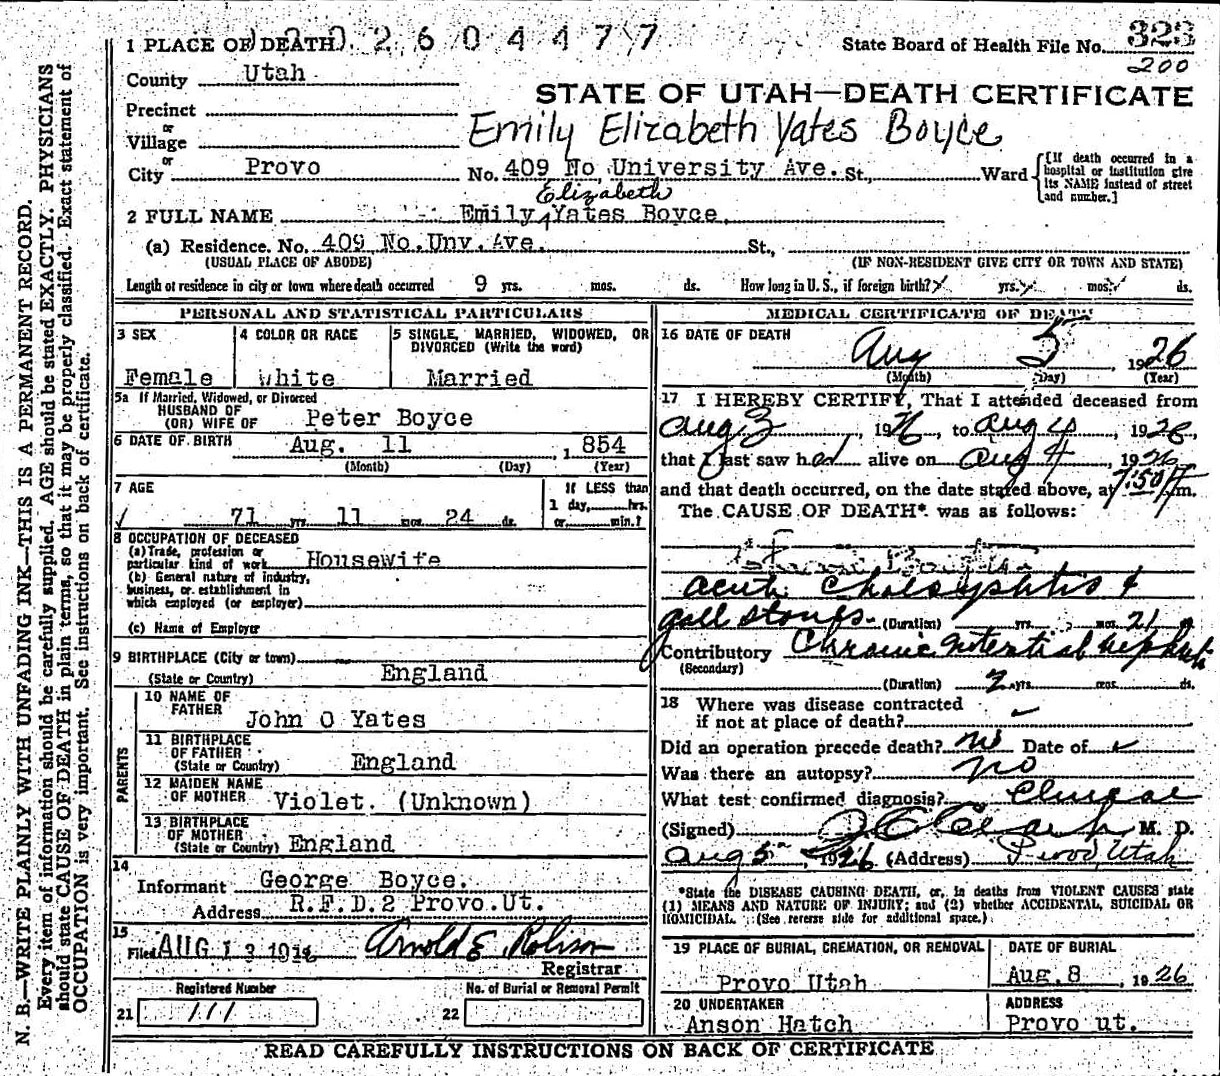 N. B.—WRITE PLAINLY WITH UNFADING INK—THIS IS A PERMANENT RECORD.
Every item of information should be carefully supplied. AGE should be stated EXACTLY. PHYSICIANS
should state CAUSE OF DEATH in plain terms, so that it may be properly classified. Exact statement of
OCCUPATION is very important. See instructions on back of certificate.
1 PLACE OF DEATH 2604477
State Board of Health File No. 323
200
County Utah
STATE OF UTAH—DEATH CERTIFICATE
Precinct
or
Village
Emily Elizabeth Yates Boyce
or
City Provo No. 409 No University Ave. St., Ward
[If death occurred in a
hospital or institution give
its NAME instead of street
and number.]
Elizabeth
2 FULL NAME Emily Yates Boyce
(a) Residence. No. 409 No. Unv. Ave. St.,
(USUAL PLACE OF ABODE) (IF NON-RESIDENT GIVE CITY OR TOWN AND STATE)
Length of residence in city or town where death occurred 9 yrs. mos. ds. How long in U. S., if foreign birth? yrs. mos. ds.
PERSONAL AND STATISTICAL PARTICULARS
3 SEX
Female
4 COLOR OR RACE
White
5 SINGLE, MARRIED, WIDOWED, OR
DIVORCED (Write the word)
Married
5a If Married, Widowed, or Divorced
HUSBAND OF
(OR) WIFE OF Peter Boyce
6 DATE OF BIRTH Aug. 11, 1854
(Month) (Day) (Year)
7 AGE
71 yrs. 11 mos. 24 ds.
If LESS than
1 day, hrs.
or min.?
8 OCCUPATION OF DECEASED
(a) Trade, profession or
particular kind of work Housewife
(b) General nature of industry,
business, or establishment in
which employed (or employer)
(c) Name of Employer
9 BIRTHPLACE (City or town)
(State or Country) England
PARENTS
10 NAME OF
FATHER John O Yates
11 BIRTHPLACE
OF FATHER
(State or Country) England
12 MAIDEN NAME
OF MOTHER Violet. (Unknown)
13 BIRTHPLACE
OF MOTHER
(State or Country) England
14
Informant George Boyce.
Address R.F.D.2 Provo.Ut.
15
Filed AUG 13 19 Arnold E. Robison
Registrar
Registered Number No. of Burial or Removal Permit
21 111 22
MEDICAL CERTIFICATE OF DEATH
16 DATE OF DEATH
Aug 5 1926
(Month) (Day) (Year)
17 I HEREBY CERTIFY, That I attended deceased from
Aug 3, 1926, to Aug 4, 1926,
that I last saw her alive on Aug 4, 1926
and that death occurred, on the date stated above, at 7:50 m.
The CAUSE OF DEATH* was as follows:
acute Cholsystitis &
gall stones. (Duration) yrs. mos. 21 ds.
Contributory Chronic
(Secondary)
(Duration) 2 yrs. mos. ds.
18 Where was disease contracted
if not at place of death?
Did an operation precede death? No Date of
Was there an autopsy? no
What test confirmed diagnosis? Clinical
(Signed) M. D.
Aug 5th, 1926 (Address) Provo, Utah
*State the DISEASE CAUSING DEATH, or, in deaths from VIOLENT CAUSES state
(1) MEANS AND NATURE OF INJURY; and (2) whether ACCIDENTAL, SUICIDAL OR
HOMICIDAL. (See reverse side for additional space.)
19 PLACE OF BURIAL, CREMATION, OR REMOVAL
Provo Utah
DATE OF BURIAL
Aug. 8 1926
20 UNDERTAKER
Anson Hatch
ADDRESS
Provo ut.
READ CAREFULLY INSTRUCTIONS ON BACK OF CERTIFICATE